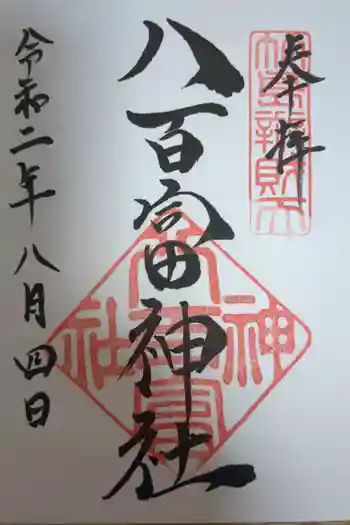 奉拝
八百富神社
令和二年八月四日
八百富神社